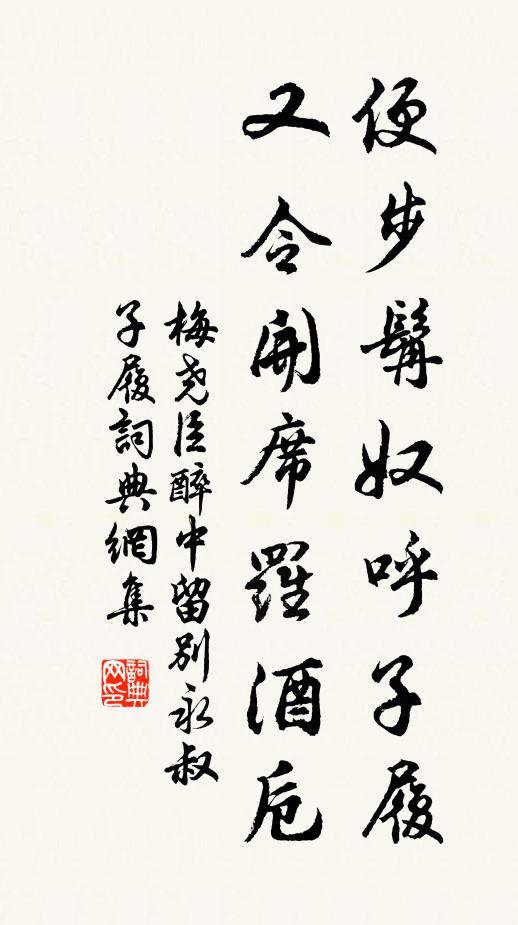 便步髯奴呼子履
又令開席羅酒卮
梅尧臣醉中留别永叔
子履詞典網集
詞典網印